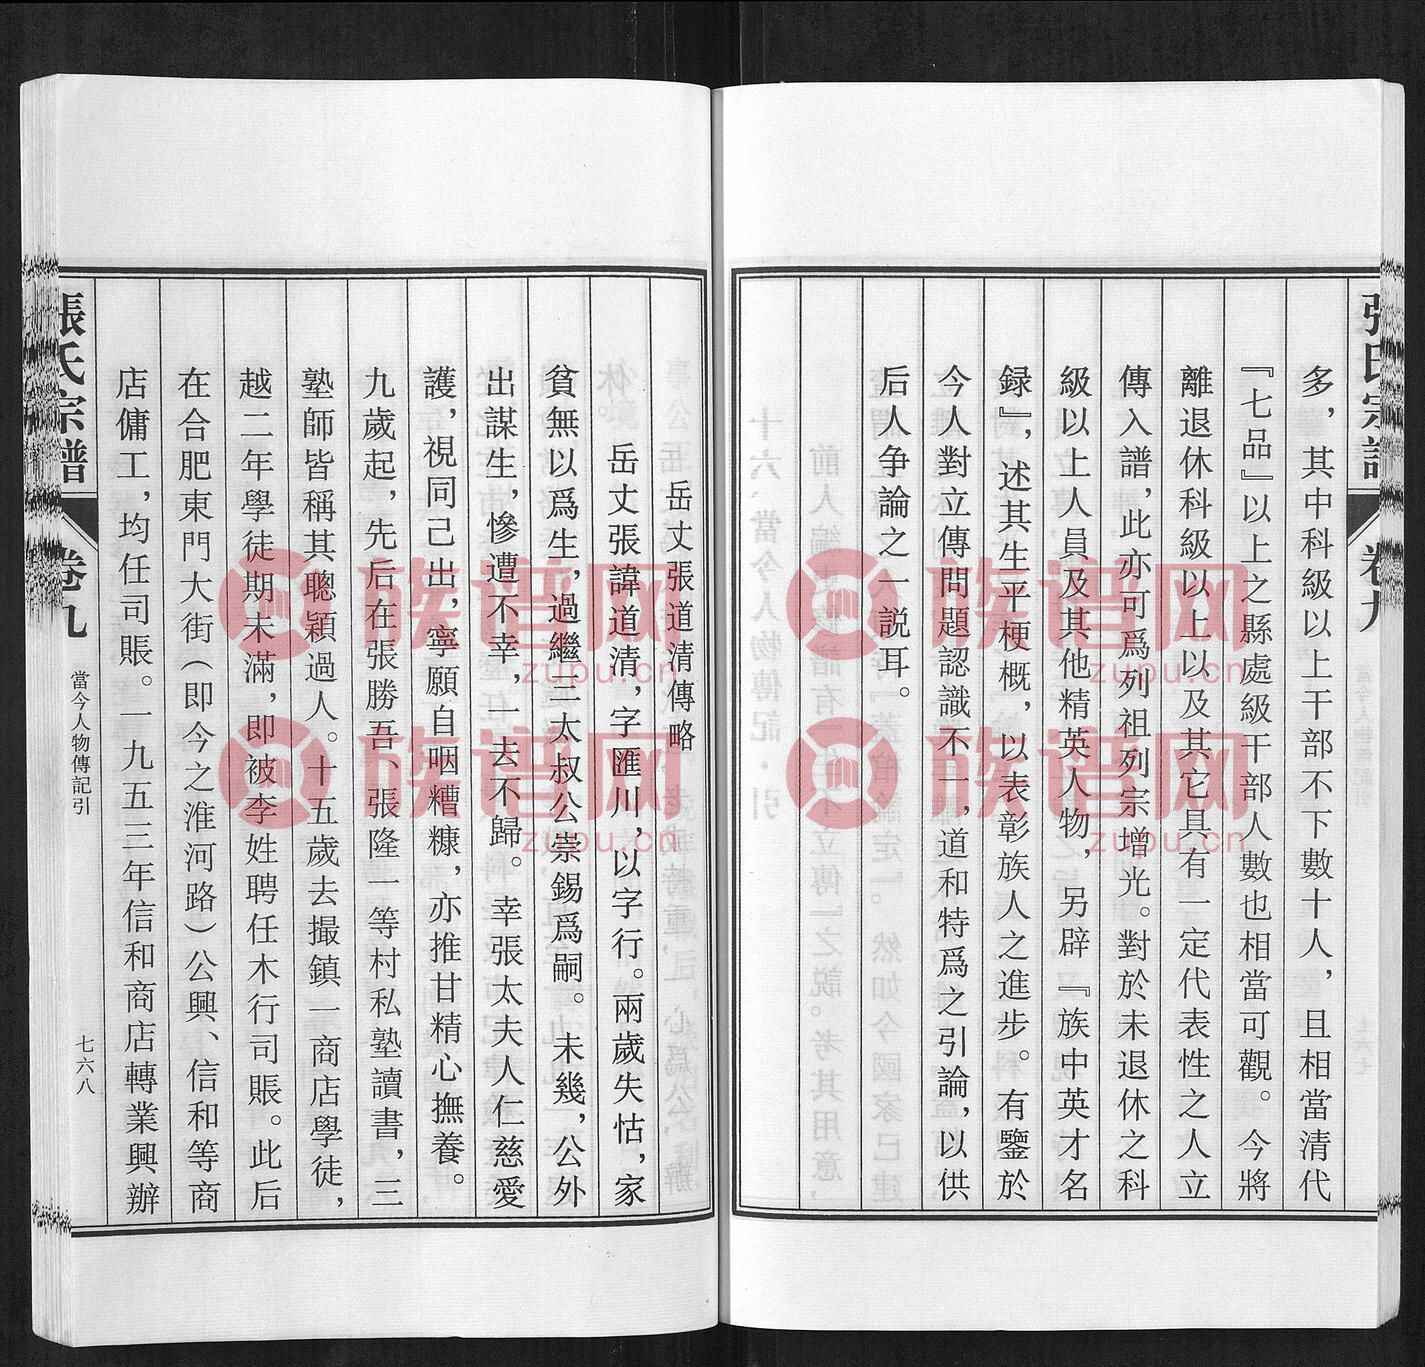 張氏宗譜
卷九
多，其中科級以上干部不下數十人，且相當清代
『七品』以上之縣處級干部人數也相當可觀。今將
離退休科級以上以及其它具有一定代表性之人立
傳入譜，此亦可爲列祖列宗增光。對於未退休之科
級以上人員及其他精英人物，另辟『族中英才名
録』，述其生平梗概，以表彰族人之進步。有鑒於
今人對立傳問題認識不一，道和特爲之引論，以供
后人争論之一説耳。
岳丈張道清傳略
岳丈張諱道清，字匯川，以字行。兩歲失怙，家
貧無以爲生，過繼三太叔公崇錫爲嗣。未幾，公外
出謀生，慘遭不幸，一去不歸。幸張太夫人仁慈愛
護，視同己出，寧願自咽糟糠，亦推甘精心撫養。
九歲起，先后在張勝吾、張隆一等村私塾讀書，三
塾師皆稱其聰穎過人。十五歲去撮鎮一商店學徒，
越二年學徒期未滿，即被李姓聘任木行司賬。此后
在合肥東門大街（即今之淮河路）公興、信和等商
店傭工，均任司賬。一九五三年信和商店轉業興辦
張氏宗譜
卷九
當今人物傳記引
七六八
族谱网
zupu.cn
族谱网
zupu.cn
族谱网
zupu.cn
族谱网
zupu.cn